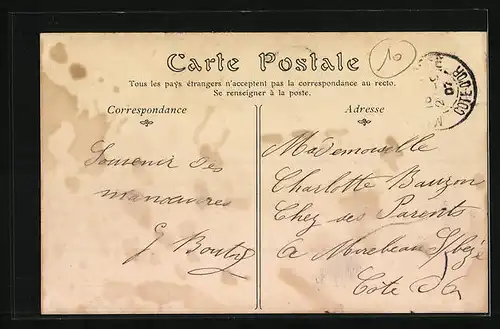 Carte Postale
Tous les pays étrangers n'acceptent pas la correspondance au recto.
Se renseigner à la poste.
Correspondance
Adresse
10
COTE-D'OR
Souvenir des
manœuvres
Mademoiselle
Charlotte Bauzon
Chez ses Parents
a Mirebeau S/Bèze
Côte d'Or